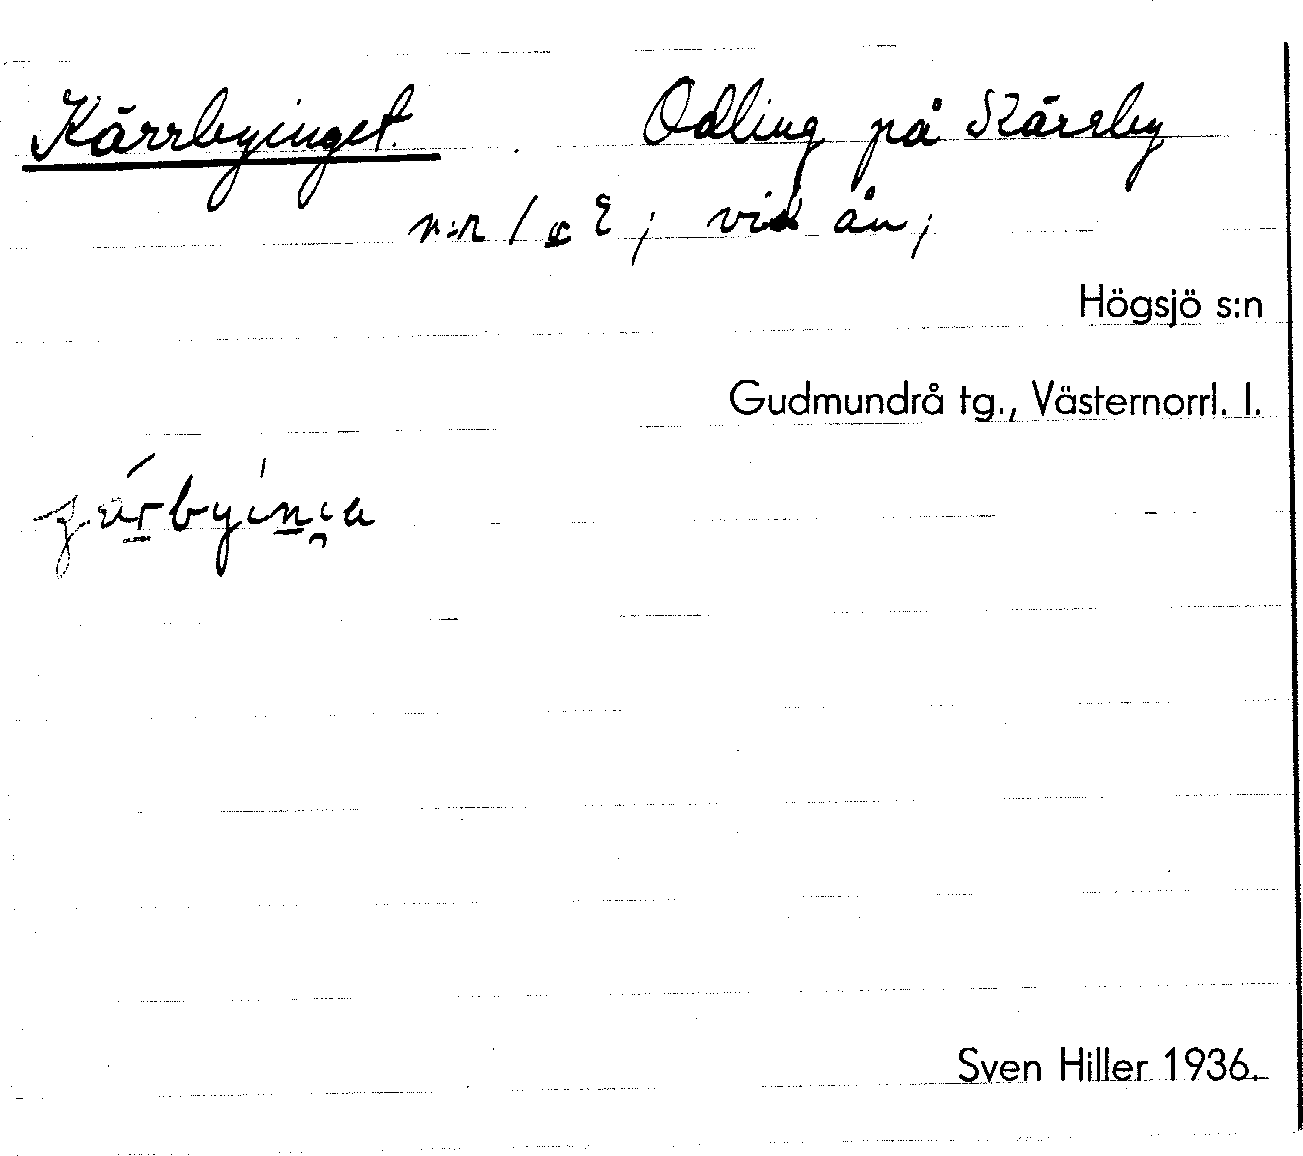 Kärrbyinget. Odling på Kärrby
n:r 1 c E; vid ån;
Högsjö s:n
Gudmundrå tg., Västernorrl. l.
Sven Hiller 1936.